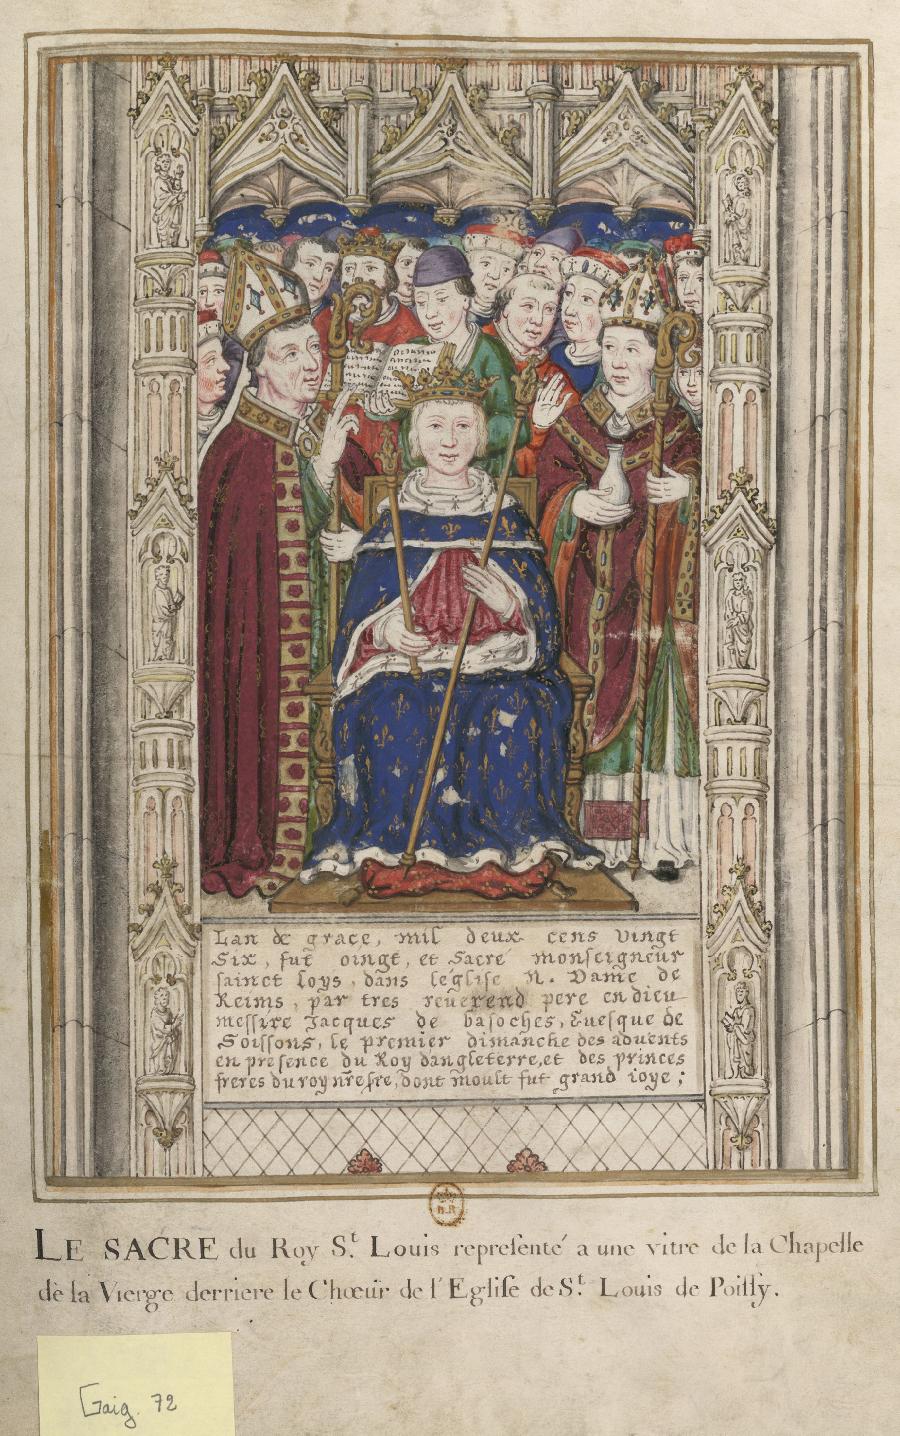 Lan de grace, mil deux cens vingt
six, fut oingt, et sacré monseigneur
sainct loys, dans leglise N. Dame de
Reims, par tres reuerend pere en dieu
messire Jacques de basoches, Euesque de
Soissons, le premier dimanche des aduents
en presence du Roy dangleterre, et des princes
freres du roy dont moult fut grand ioye ;
B.R
LE SACRE du Roy S.t Louis representé a une vitre de la Chapelle
de la Vierge derriere le Chœur de l'Eglise de S.t Louis de Poissy.
Gaig. 72